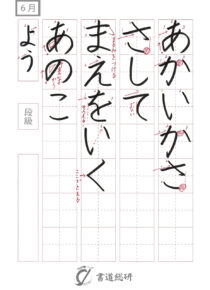 6月
あかいかさ
さして
まえをいく
あのこ
よう
段級
書道総研